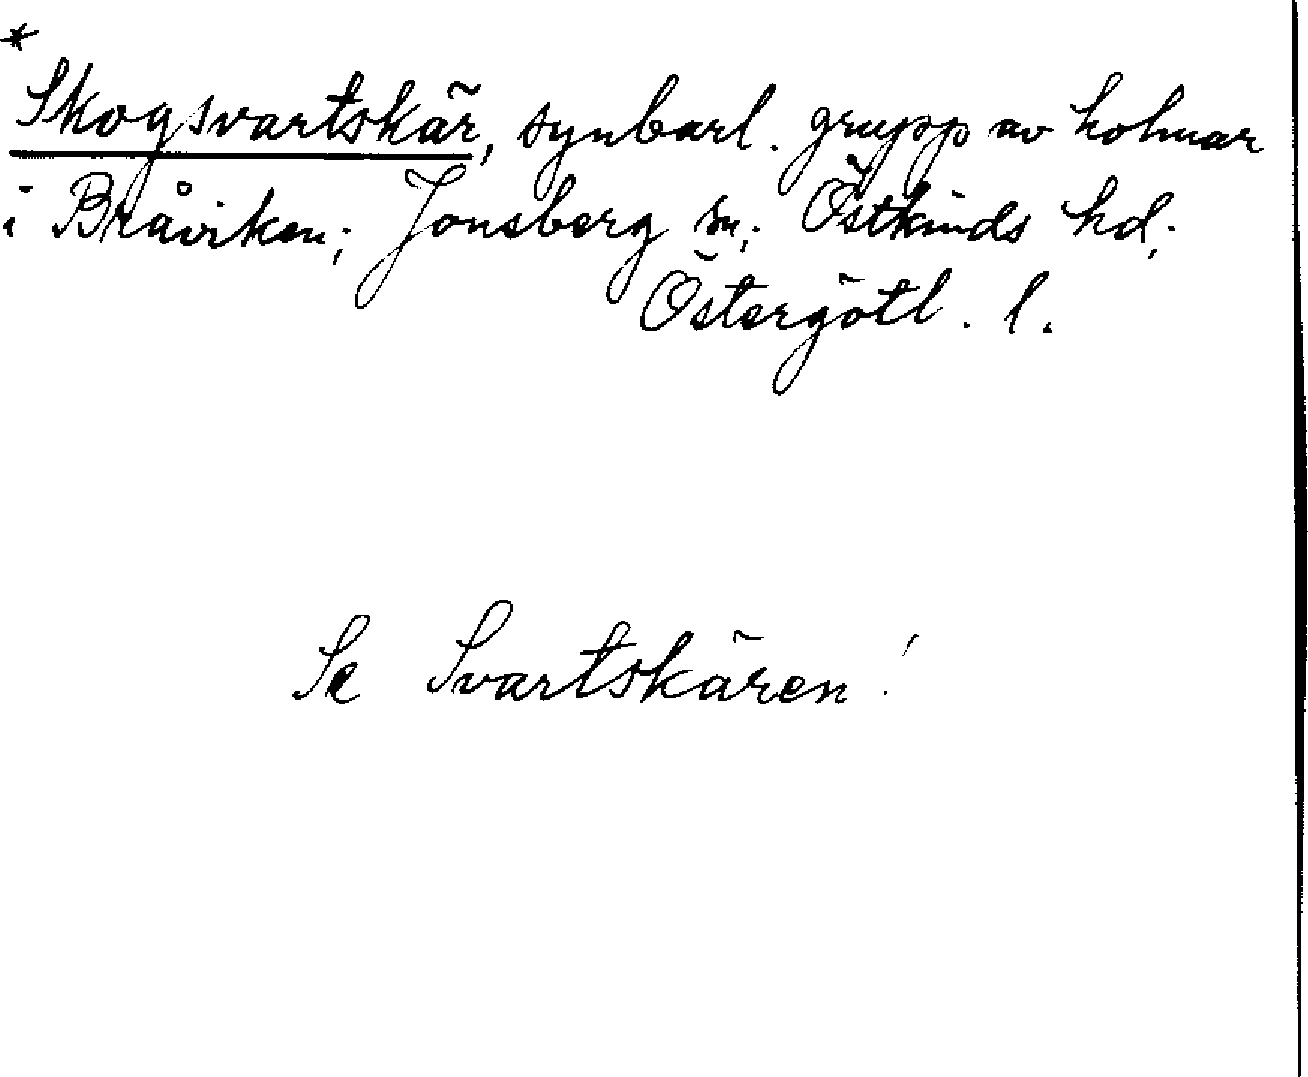 *
Skogsvartskär, synbarl. grupp av holmar
i Bråviken; Jonsberg sn; Östkinds hd;
Östergötl. l.
Se Svartskären!